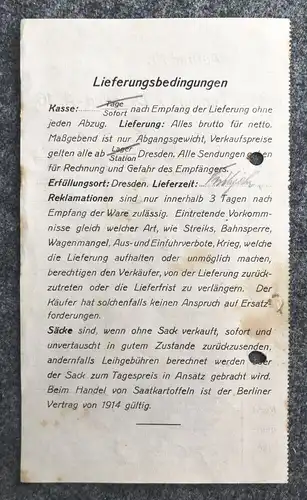 Lieferungsbedingungen
Kasse: Tage Sofort nach Empfang der Lieferung ohne
jeden Abzug. Lieferung: Alles brutto für netto.
Maßgebend ist nur Abgangsgewicht, Verkaufspreise
gelten alle ab Lager Station Dresden. Alle Sendungen
für Rechnung und Gefahr des Empfängers.
Erfüllungsort: Dresden. Lieferzeit:
Reklamationen sind nur innerhalb 3 Tagen nach
Empfang der Ware zulässig. Eintretende Vorkomm-
nisse gleich welcher Art, wie Streiks, Bahnsperre,
Wagenmangel, Aus- und Einfuhrverbote, Krieg, welche
die Lieferung aufhalten oder unmöglich machen,
berechtigen den Verkäufer, von der Lieferung zurück-
zutreten oder die Lieferfrist zu verlängern. Der
Käufer hat solchenfalls keinen Anspruch auf Ersatz-
forderungen.
Säcke sind, wenn ohne Sack verkauft, sofort und
unvertauscht in gutem Zustande zurückzusenden,
andernfalls Leihgebühren berechnet werden oder
der Sack zum Tagespreis in Ansatz gebracht wird.
Beim Handel von Saatkartoffeln ist der Berliner
Vertrag von 1914 gültig.